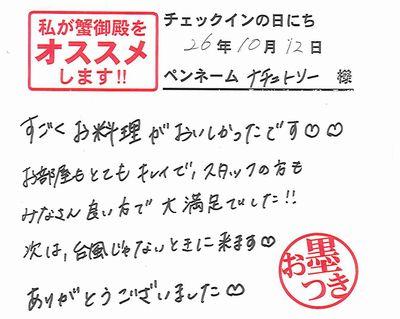 私が蟹御殿を
オススメ
します!!
チェックインの日にち
26年10月12日
ペンネーム ナチュトソー 様
すごくお料理がおいしかったです♡♡
お部屋もとてもキレイで、スタッフの方も
みなさん良い方で大満足でした!!
次は、台風じゃないときに来ます♡
ありがとうございました♡
お墨つき